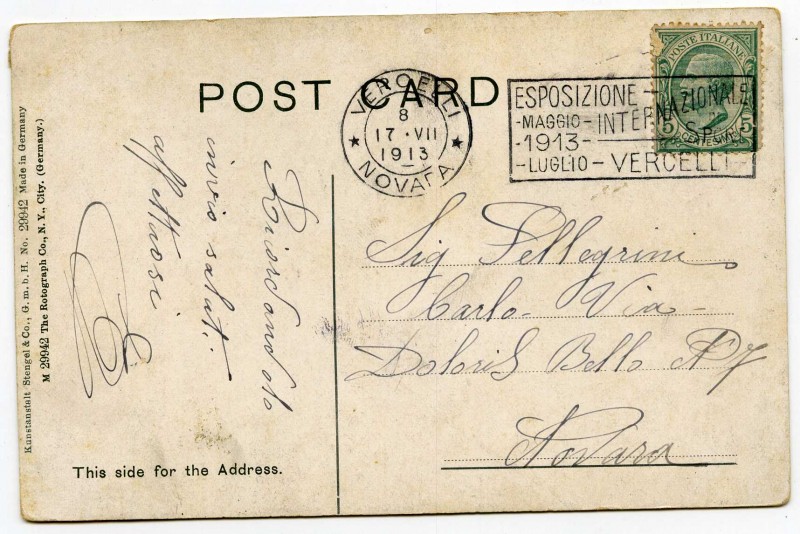 POST CARD
VERCELLI
8
17 · VII
1913
★ NOVARA ★
ESPOSIZIONE
- MAGGIO - INTERNAZIONALE
- 1913 - SPORT
- LUGLIO - VERCELLI
POSTE ITALIANE
5 CENTESIMI 5
Kunstanstalt Stengel & Co., G. m. b. H. No. 29942 Made in Germany
M 29942 The Rotograph Co., N. Y., City. (Germany.)
Ricordandoto
invio saluti
affettuosi
Sig Pellegrini
Carlo - Via -
Dolores Bello N 7
Novara
This side for the Address.